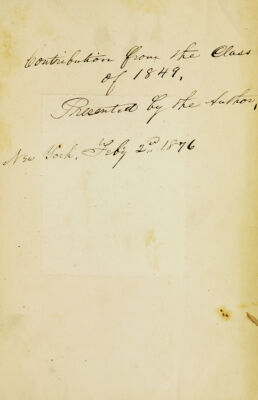 Contribution from the Class
of 1849.
Presented by the Author,
New York, Feby 2nd 1876